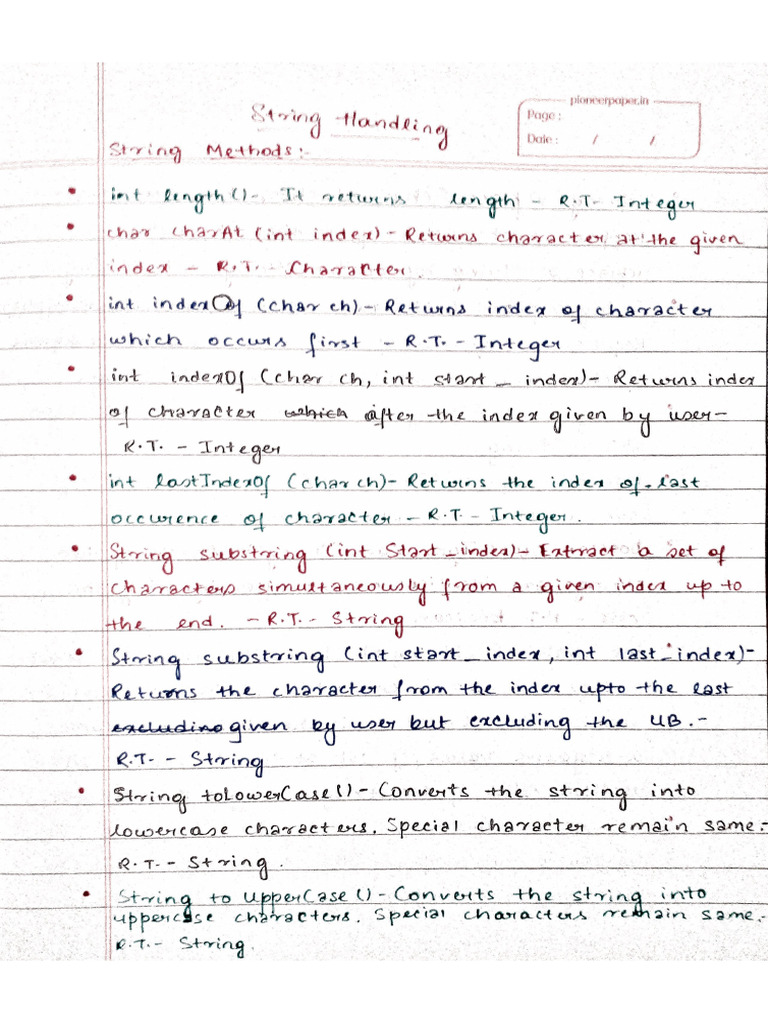 pioneerpaper.in
Page :
Date : / /
String Handling
String Methods:-
• int length() - It returns length - R.T- Integer
• char charAt (int index) - Returns character at the given
index - R.T. - Character.
• int indexOf (char ch) - Returns index of character
which occurs first - R.T. - Integer
• int indexOf (char ch, int start_index) - Returns index
of character which after the index given by user-
R.T. - Integer
• int lastIndexOf (char ch) - Returns the index of last
occurence of character - R.T - Integer.
• String substring (int Start_index) - Extract a set of
characters simultaneously from a given index up to
the end. - R.T. - String
• String substring (int start_index, int last_index) -
Returns the character from the index upto the last
excluding given by user but excluding the UB. -
R.T. - String
• String toLowerCase() - Converts the string into
lowercase characters. Special character remain same.-
R.T. - String.
• String to UpperCase() - Converts the string into
uppercase characters. Special characters remain same.-
R.T.- String.